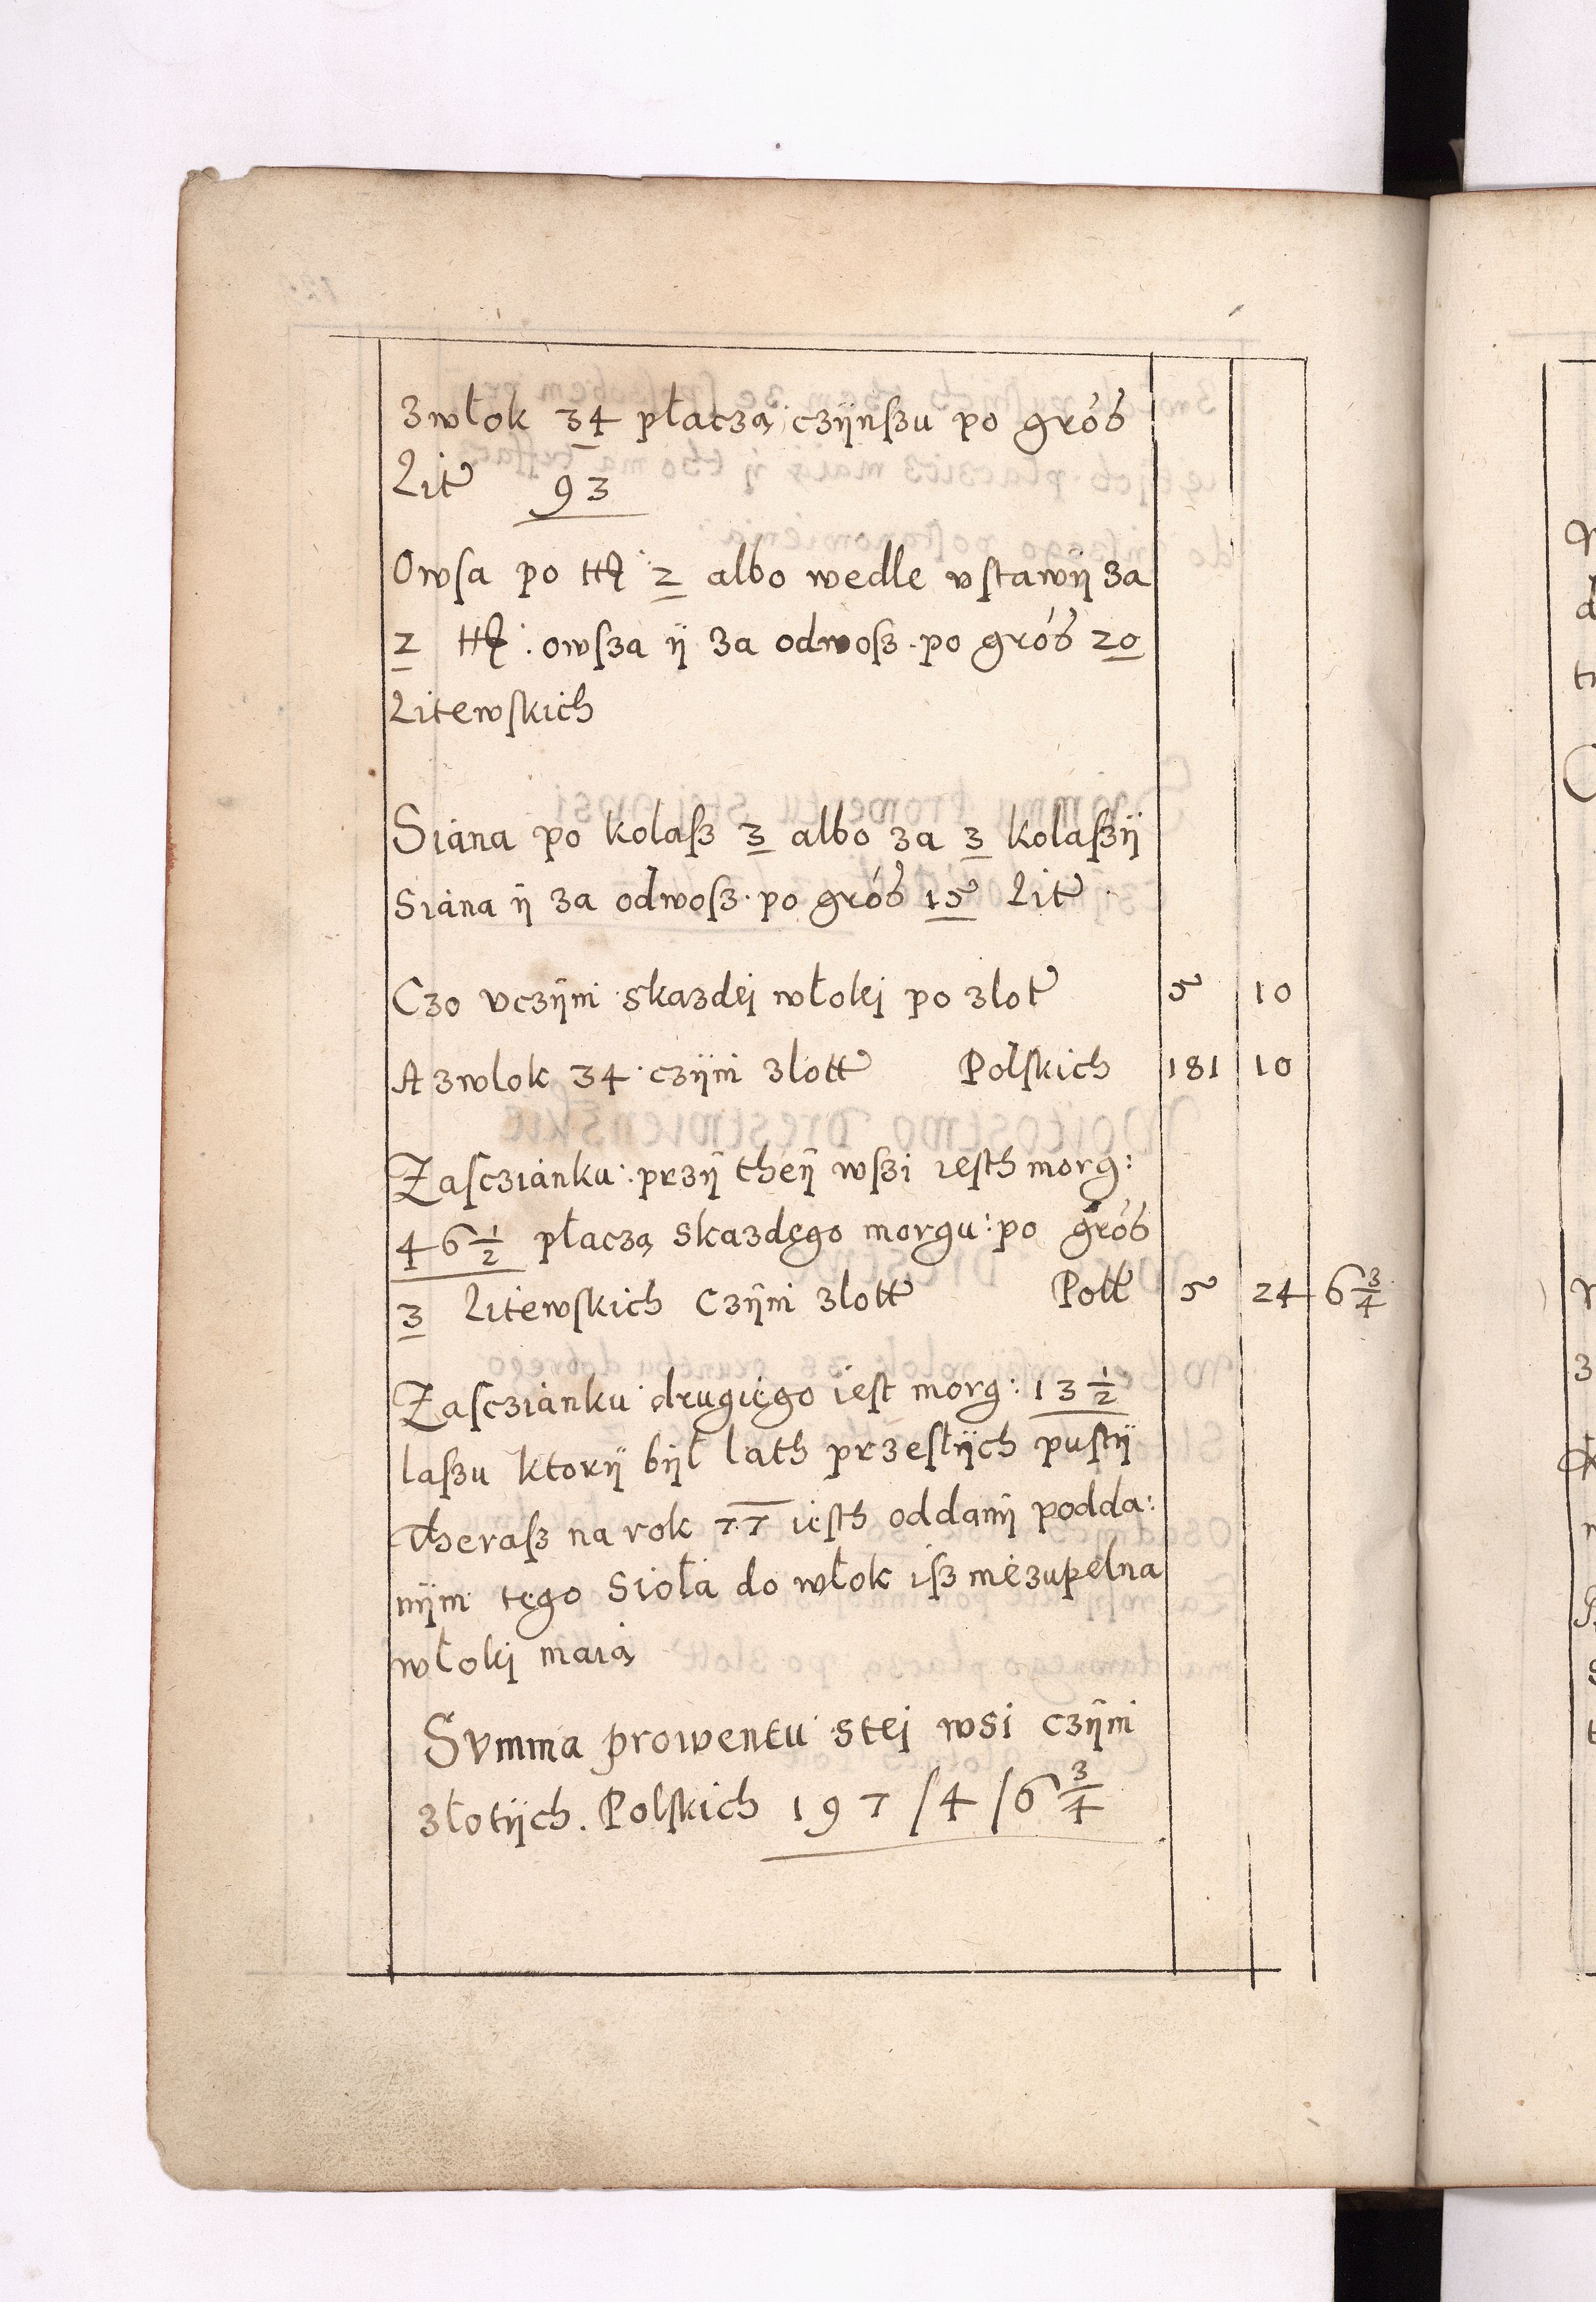 Zwłok 34 płaczą czÿnſzu po groſz
Lit 93
Owſa po 2 albo wedle vſtawÿ za
2 owſza ÿ za odwoſz po groſz 20
Litewſkich
Siana po kolaſz 3 albo za 3 kolaſzÿ
Siana ÿ za odwoſz po groſz 15 Lit
Czo vczÿni skazdej włokj po zlot 5 10
A zwlok 34 czÿni zlott Polſkich 181 10
Zaſczianku przÿ theÿ wſzi ieſth morg:
46 1/2 płaczą skazdego morgu: po groſz
3 Litewſkich Czÿni zlott Poll 5 24 6 3/4
Zaſczianku drugiego ieſt morg: 13 1/2
laſzu ktorÿ bÿł lath przeſłÿch puſtÿ
theraſz na rok 77 ieſth oddanÿ podda:
nÿm tego Sioła do włok iſz niezupelna
włokj maią
Summa prowentu stej wsi czÿni
złotÿch. Polſkich 197 / 4 / 6 3/4